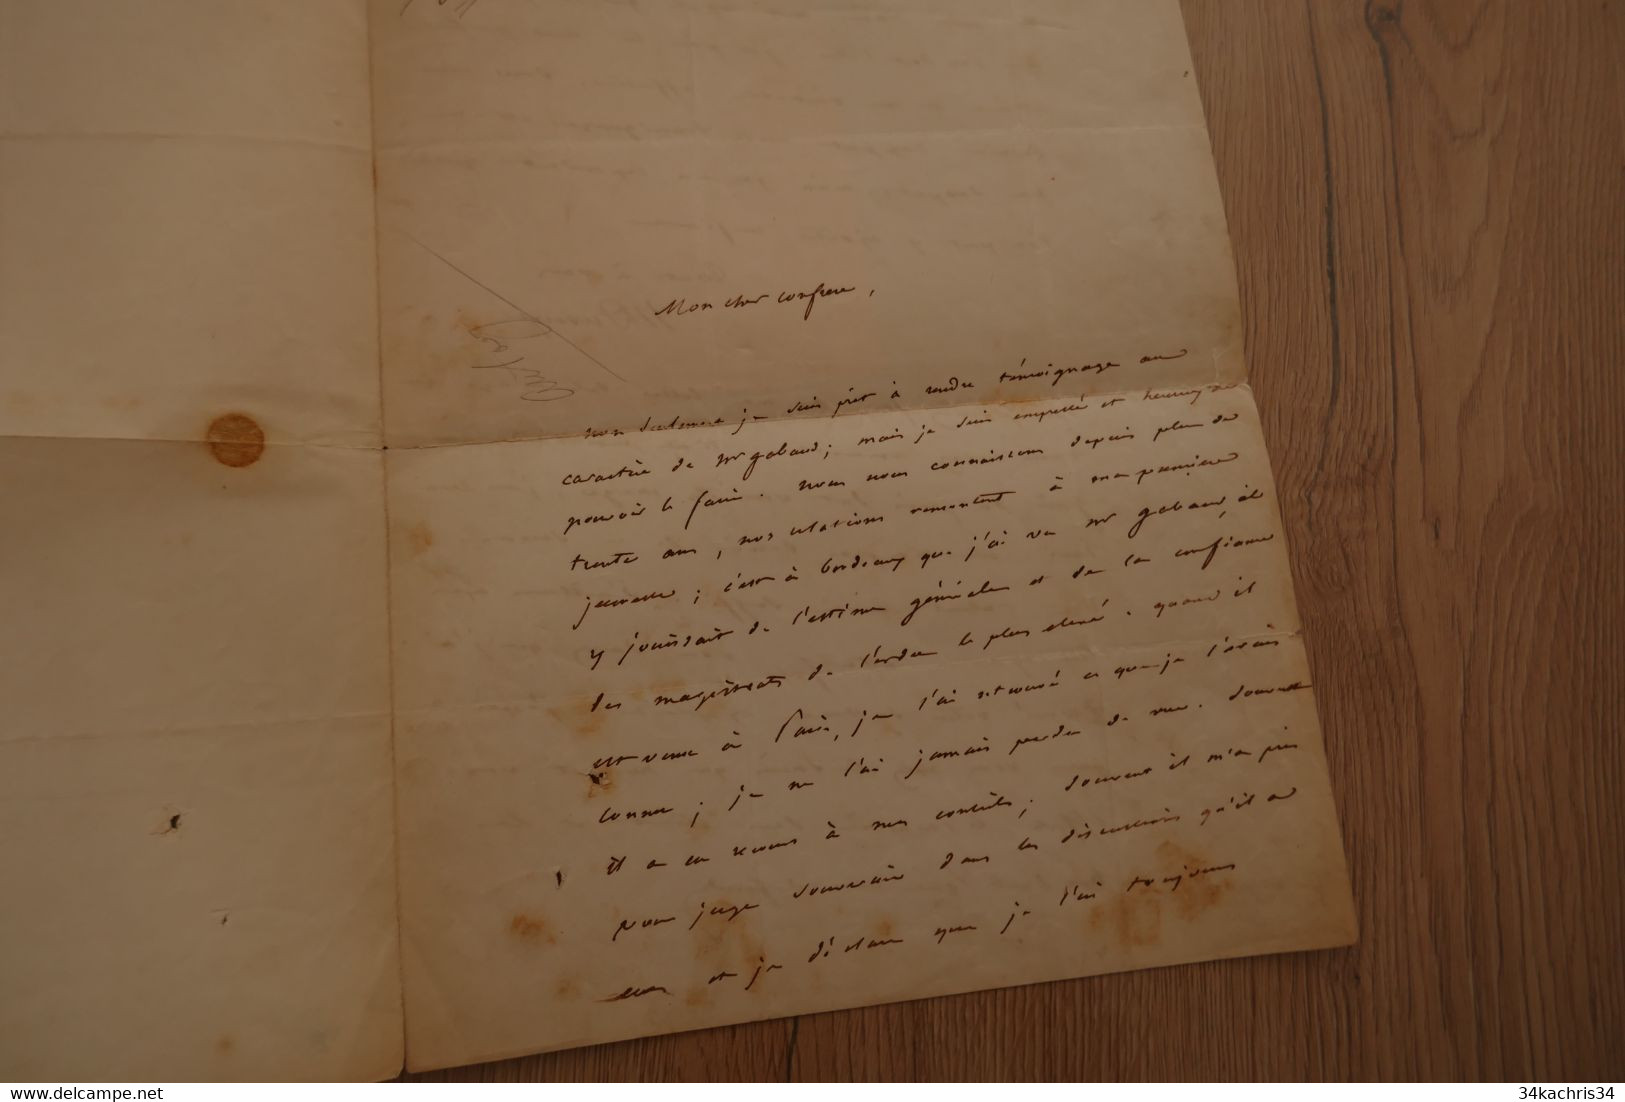 Mon cher confrere,
non seulement je suis prêt à rendre témoignage au
caractère de Mr gabaud; mais je suis empressé et heureux de
pouvoir le faire. nous nous connaissons depuis plus de
trente ans, nos relations remontent à ma première
jeunesse; c'est à bordeaux que j'ai vu Mr gabaud, il
y jouissait de l'estime générale et de la confiance
des magistrats de l'ordre le plus elevé. quand il
est venu à Paris, je l'ai retrouvé ce que je l'avais
connu; je ne l'ai jamais perdu de vue. souvent
il a eu recours à mes conseils; souvent il m'a pris
pour juge souverain dans les discussions qu'il a
eues et je déclare que je l'ai toujours
34kachris34